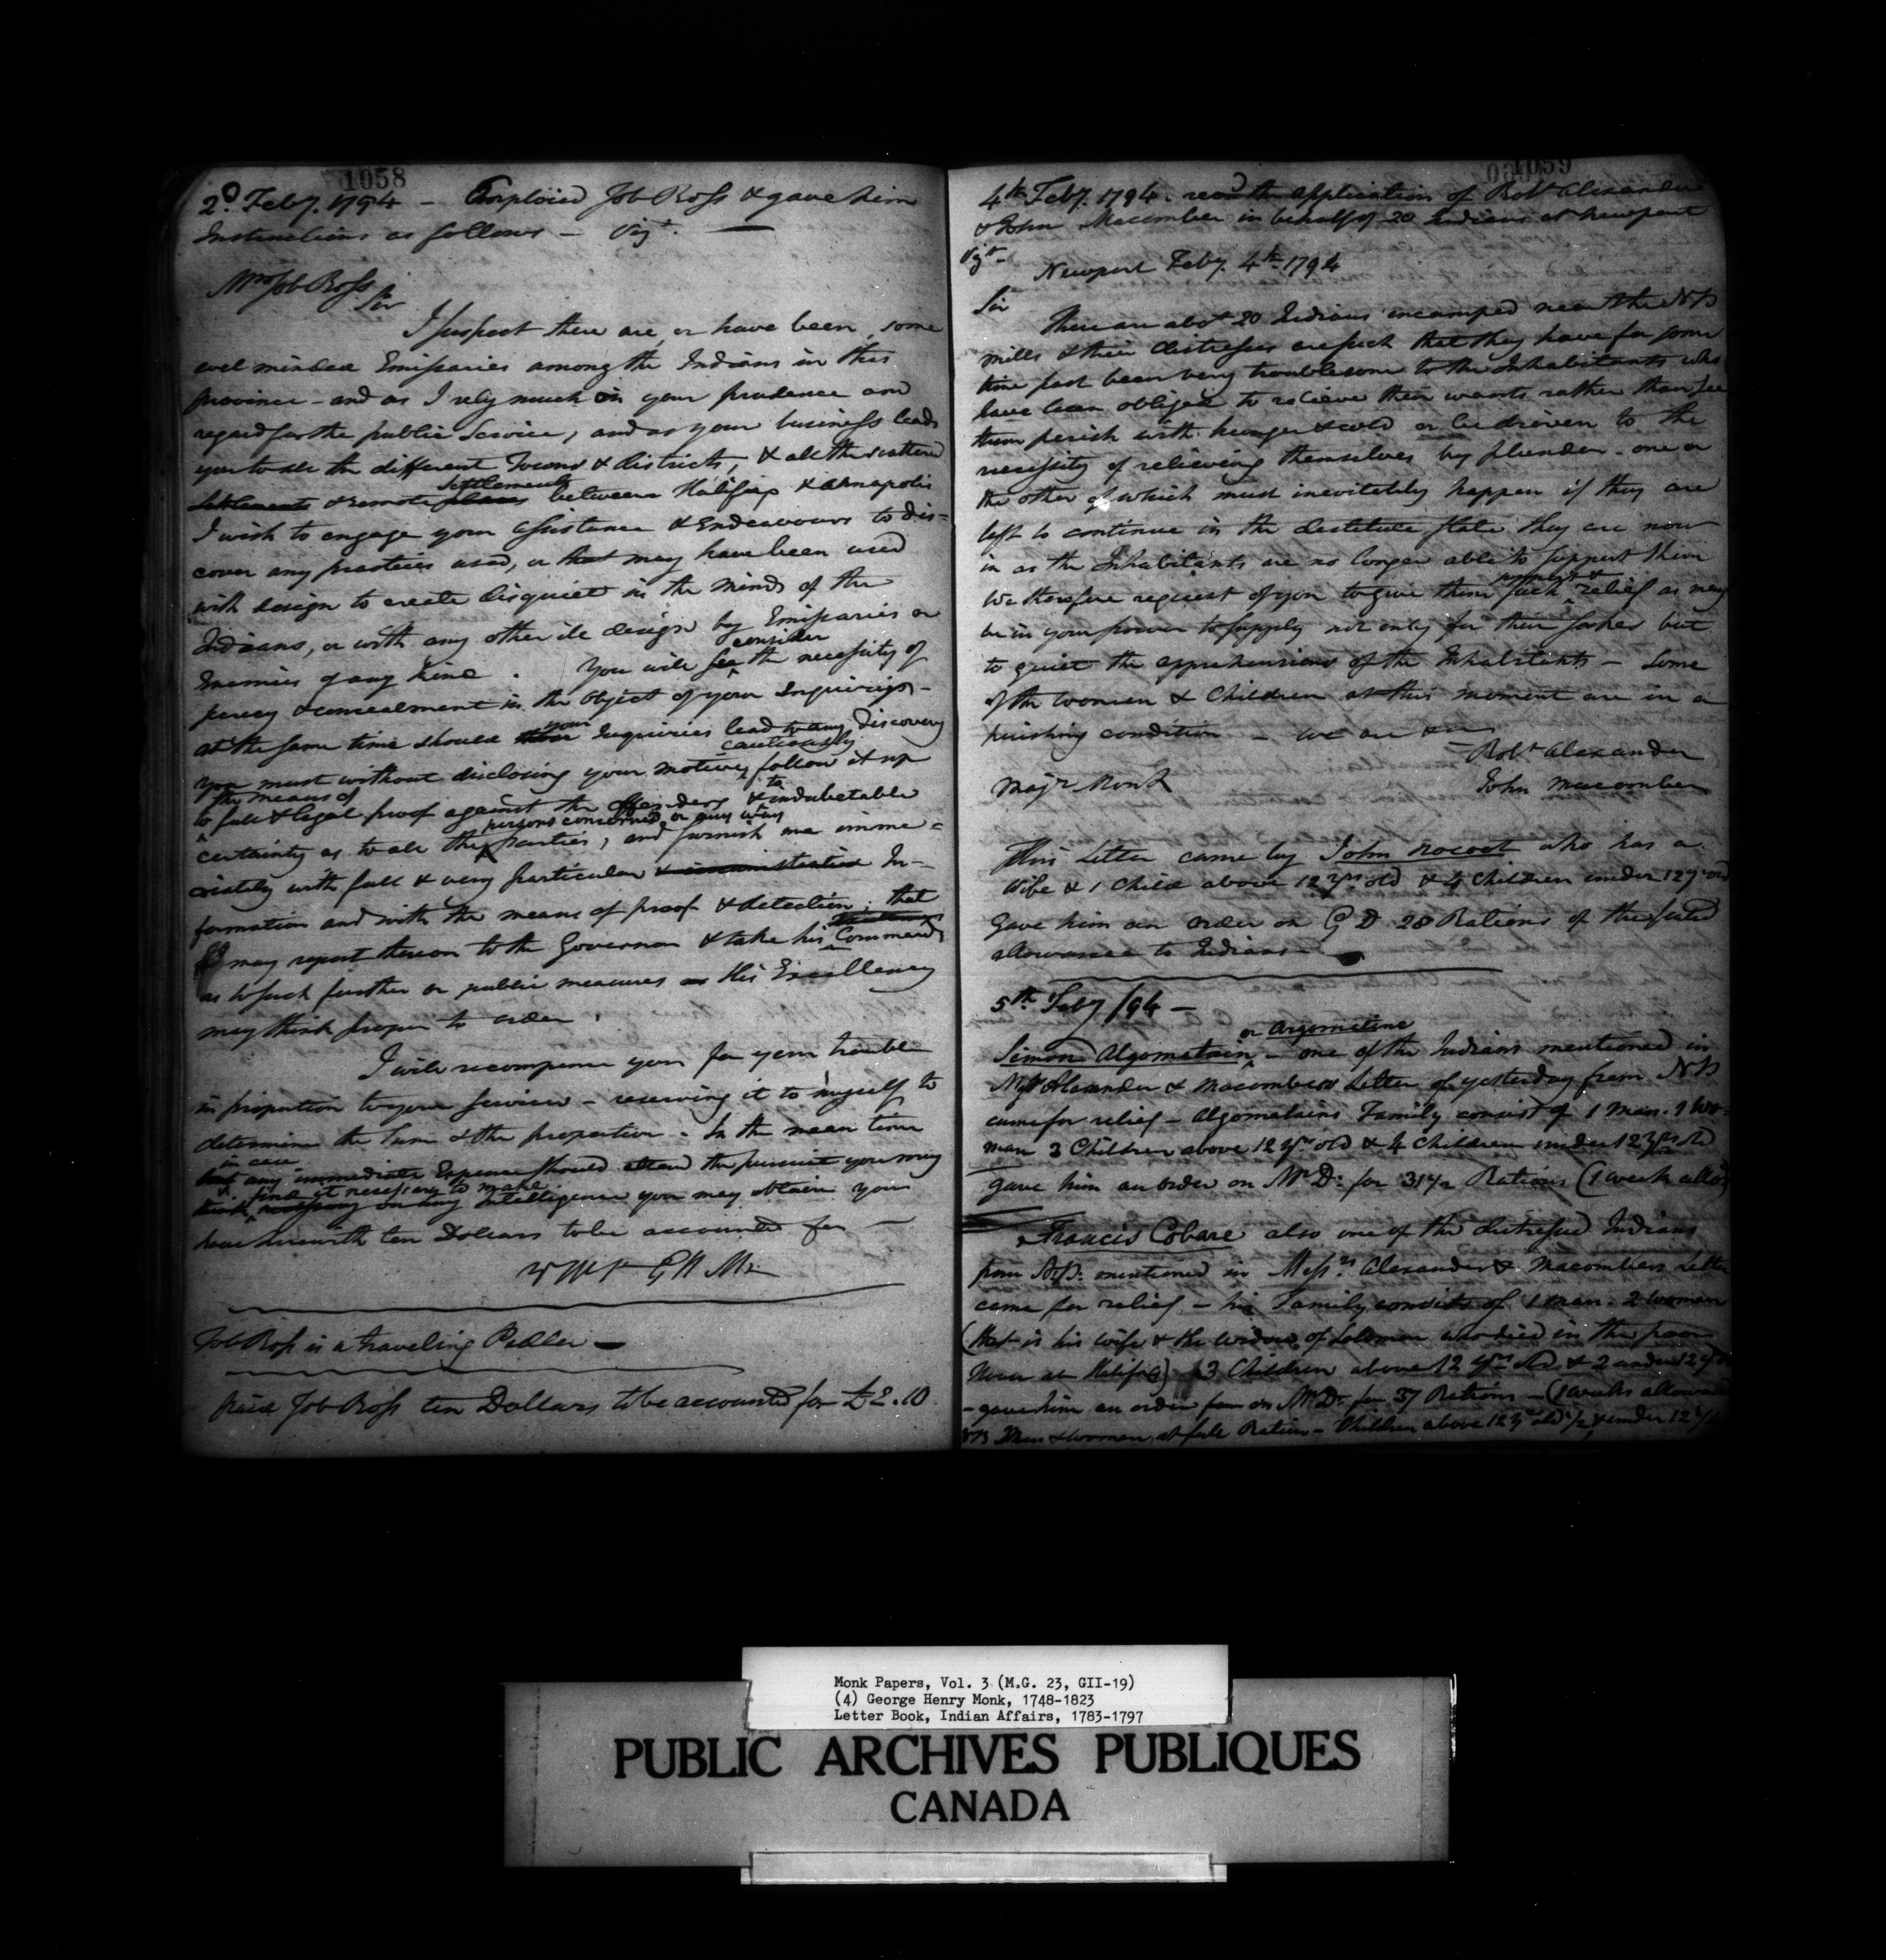 1058
2d. Feby. 1794 - Employed Job Ross & gave him
Instructions as follows - Vizt.
Mr. Job Ross
Sir
I suspect there are, or have been, some
evil minded Emissaries among the Indians in this
province - and as I rely much on your prudence and
regard for the public Service, and as your business leads
you to all the different Towns & districts, & all the scattered
settlements
Settlements & remote places between Halifax & Annapolis
I wish to engage your assistance & Endeavours to dis=
cover any practices used, or that may have been used
with design to create disquiet in the minds of the
Indians, or with any other ill design by Emissaries or
consider
Enemies of any kind. You will see the necessity of
secrecy & concealment in the object of your Inquiries -
your
at the same time should Inquiries lead to any discovery
cautiously
you must without disclosing your motives follow it up
the means of to
to full & legal proof against the offenders & indubetable
persons concerned or any way
certainty as to all the parties, and furnish me imme=
diately with full & very particular & circumstantial In-
formation and with the means of proof & detection; that
I may report thereon to the Governor & take his Commands
as to such further or public measures as His Excellency
may think proper to order.
I will recompense you for your trouble
in proportion to your services - reserving it to myself to
determine the Sum & the proportion. In the mean time
in case
but any immediate Expence should attend the pursuit you may
find it necessary to make
think necessary on any Intelligence you may obtain you
have herewith ten Dollars to be accounted for -
GHM
Job Ross is a traveling Pedler -
paid Job Ross ten Dollars to be accounted for £2.10
1059
4th Feby. 1794. recd the application of Robt Alexander
& John Macomber in behalf of 20 Indians at Newport
Vizt-
Newport Feby. 4th 1794
Sir
There are abot 20 Indians incamped near the NP
mills & their distresses are such that they have for some
time past been very troublesome to the Inhabitants who
have been obliged to relieve their wants rather than see
them perish with hunger & cold or be driven to the
necessity of relieving themselves by plunder - one or
the other of which must inevitably happen if they are
left to continue in the destitute state they are now
in as the Inhabitants are no longer able to support them
We therefore request of you to give them such relief as may
be in your power to supply not only for their sakes but
to quiet the apprehensions of the Inhabitants - Some
of the women & Children at this moment are in a
perishing condition - we are &c
Robt Alexander
Majr Monk
John Macomber
This Letter came by John Nocoot who has a
Wife & 1 Child above 12 yrs old & 4 Children under 12 yrs old
Gave him an order on G D 28 Rations of the
allowance to Indians -
5th Feby /94 -
or Argomatine
Simon Algomatain - one of the Indians mentioned in
Alexander & Macombers Letter of yesterday from NP
came for relief - Algomatains Family consist of 1 man. 1 wo-
man 3 Children above 12 yrs old & 4 children under 12 yrs old
gave him an order on Mr D. for 31 1/2 Rations (1 week allo
Francis Cobare also one of the distressed Indians
from N.P. mentioned in Messrs Alexander & Macombers Letter
came for relief - his Family consists of 1 man. 2 women
(that is his wife & the widow of Solomon who died in the poor
House at Halifax) 3 Children above 12 yrs old & 2 under 12 yrs
- gave him an order on Mr D. for 37 Rations - (weeks allowance
NB Men & women at full Ration - Children above 12 yrs old 1/2 & under 12
Monk Papers, Vol. 3 (M.G. 23, GII-19)
(4) George Henry Monk, 1748-1823
Letter Book, Indian Affairs, 1783-1797
PUBLIC ARCHIVES PUBLIQUES
CANADA